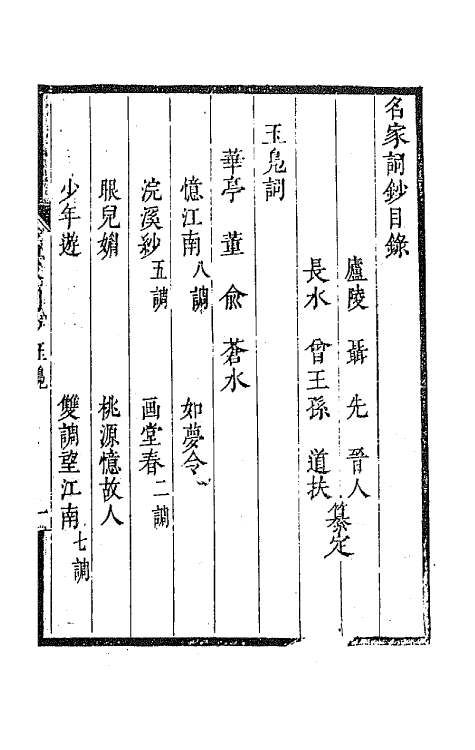 名家詞鈔目錄
廬陵 聶先 晉人
長水 曾王孫 道扶
纂定
玉鳧詞
華亭 董俞 蒼水
憶江南八調 如夢令
浣溪紗五調 畫堂春二調
眼兒媚 桃源憶故人
少年遊 雙調望江南七調
玉鳧
一